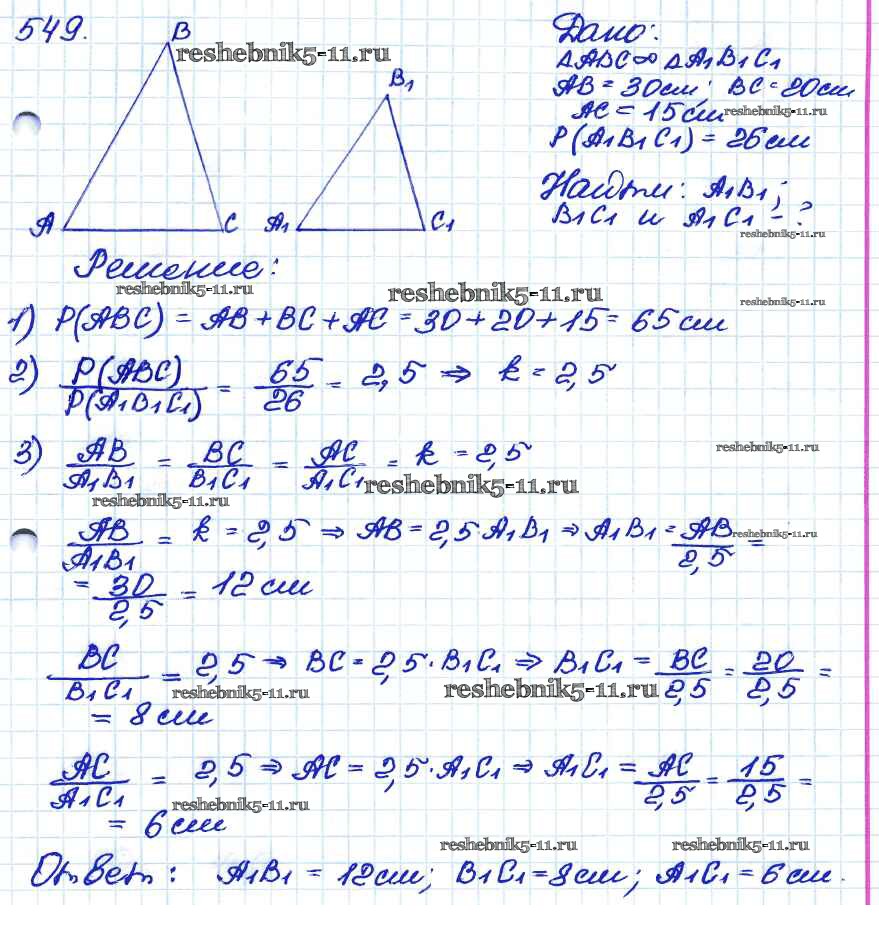 549.
B
reshebnik5-11.ru
Дано:
△ABC ∞ △A₁B₁C₁
B₁
AB = 30см; BC = 20см
AC = 15см
reshebnik5-11.ru
P(A₁B₁C₁) = 26см
Найти: A₁B₁;
A
C
A₁
C₁
B₁C₁ и A₁C₁ - ?
reshebnik5-11.ru
Решение:
reshebnik5-11.ru
reshebnik5-11.ru
reshebnik5-11.ru
1) P(ABC) = AB + BC + AC = 30 + 20 + 15 = 65 см
2) P(ABC)/P(A₁B₁C₁) = 65/26 = 2,5 ⇒ k = 2,5
3) AB/A₁B₁ = BC/B₁C₁ = AC/A₁C₁ = k = 2,5
reshebnik5-11.ru
reshebnik5-11.ru
reshebnik5-11.ru
AB/A₁B₁ = k = 2,5 ⇒ AB = 2,5·A₁B₁ ⇒ A₁B₁ = AB/2,5 =
reshebnik5-11.ru
= 30/2,5 = 12 см
BC/B₁C₁ = 2,5 ⇒ BC = 2,5·B₁C₁ ⇒ B₁C₁ = BC/2,5 = 20/2,5 =
reshebnik5-11.ru
reshebnik5-11.ru
= 8 см
AC/A₁C₁ = 2,5 ⇒ AC = 2,5·A₁C₁ ⇒ A₁C₁ = AC/2,5 = 15/2,5 =
reshebnik5-11.ru
= 6 см
reshebnik5-11.ru
reshebnik5-11.ru
Ответ: A₁B₁ = 12см; B₁C₁ = 8см; A₁C₁ = 6 см.